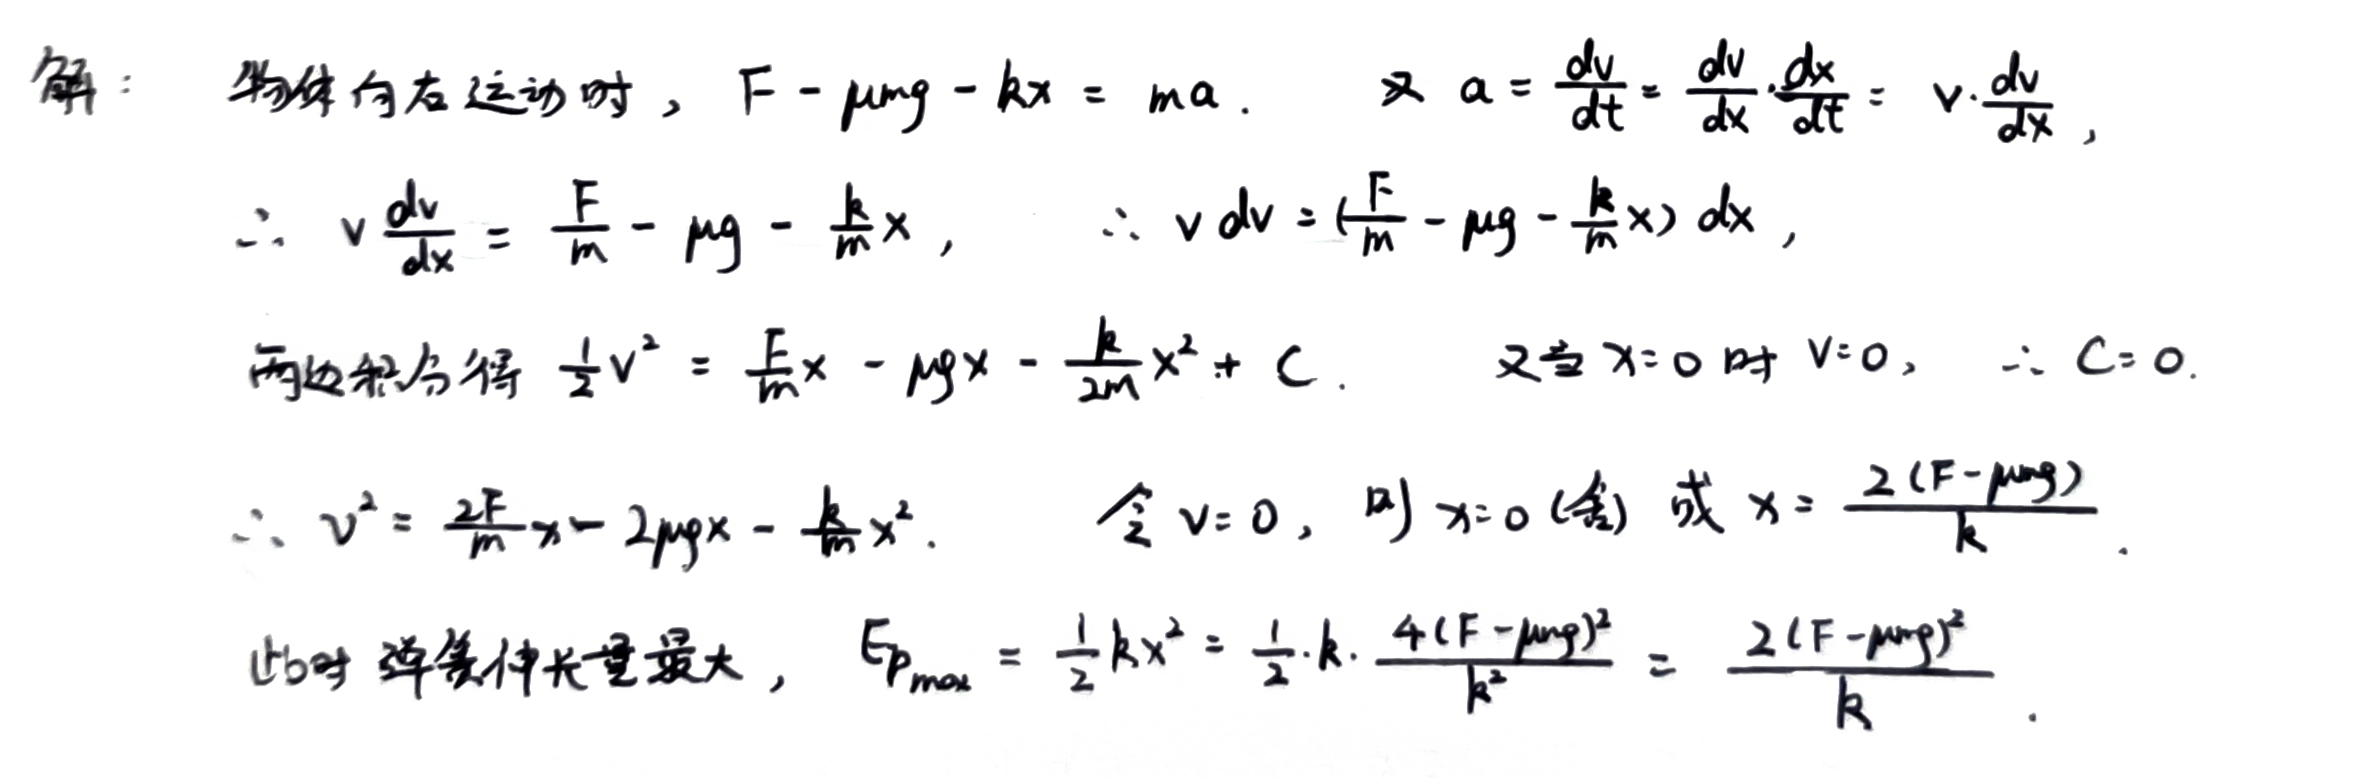 解： 物体向右运动时，F - μmg - kx = ma. 又 a = dv/dt = dv/dx · dx/dt = v · dv/dx，
∴ v dv/dx = F/m - μg - k/m x， ∴ v dv = (F/m - μg - k/m x) dx，
两边积分得 1/2 v² = F/m x - μgx - k/2m x² + C. 又当 x=0 时 v=0， ∴ C=0.
∴ v² = 2F/m x - 2μgx - k/m x². 令 v=0，则 x=0（舍）或 x = 2(F-μmg)/k .
此时弹簧伸长量最大，Epmax = 1/2 kx² = 1/2 · k · 4(F-μmg)²/k² = 2(F-μmg)²/k .